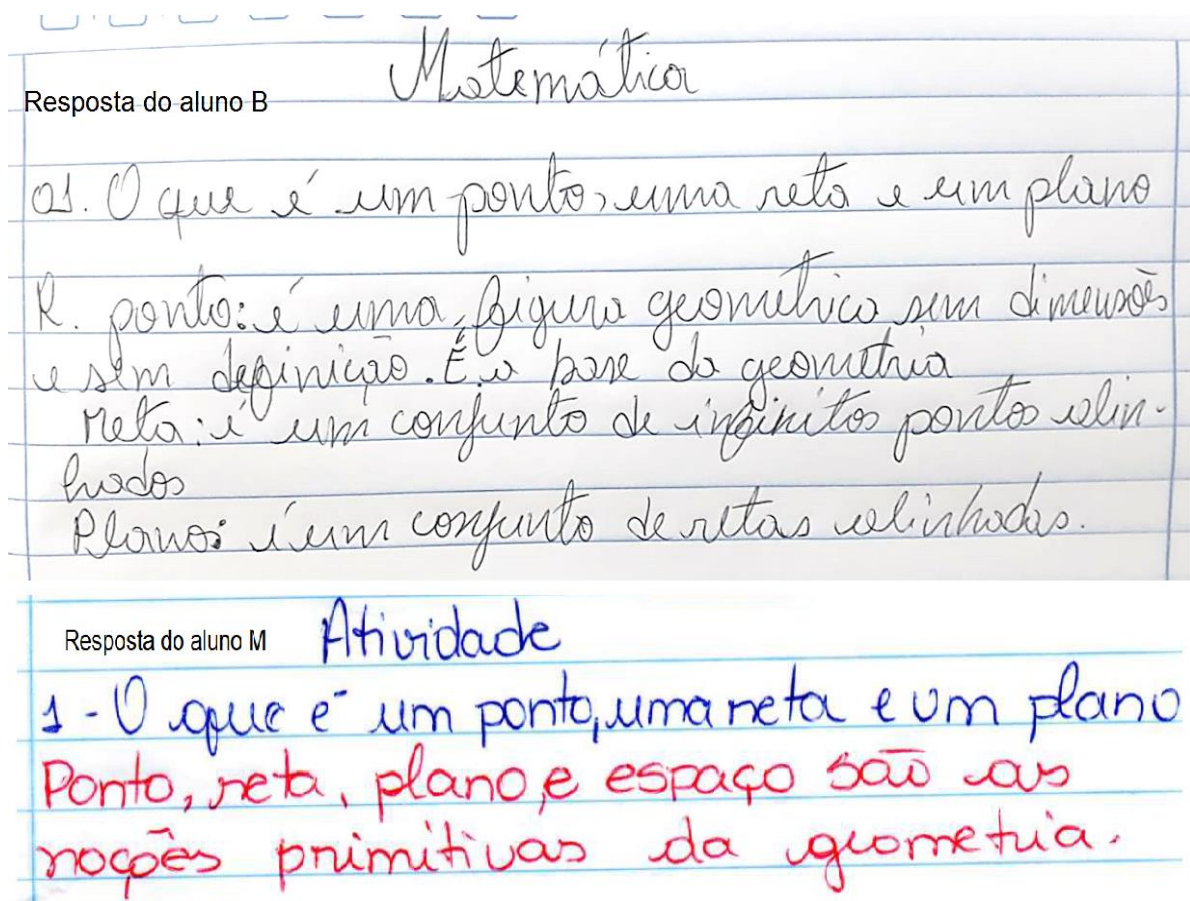 Matemática
Resposta do aluno B
01. O que é um ponto, uma reta e um plano
R. ponto: é uma figura geométrica sem dimensões
e sem definição. É a base da geometria
reta: é um conjunto de infinitos pontos alin-
hados
Plano: é um conjunto de retas alinhadas.
Resposta do aluno M Atividade
1 - O que é um ponto, uma reta e um plano
Ponto, reta, plano, e espaço são as
noções primitivas da geometria.